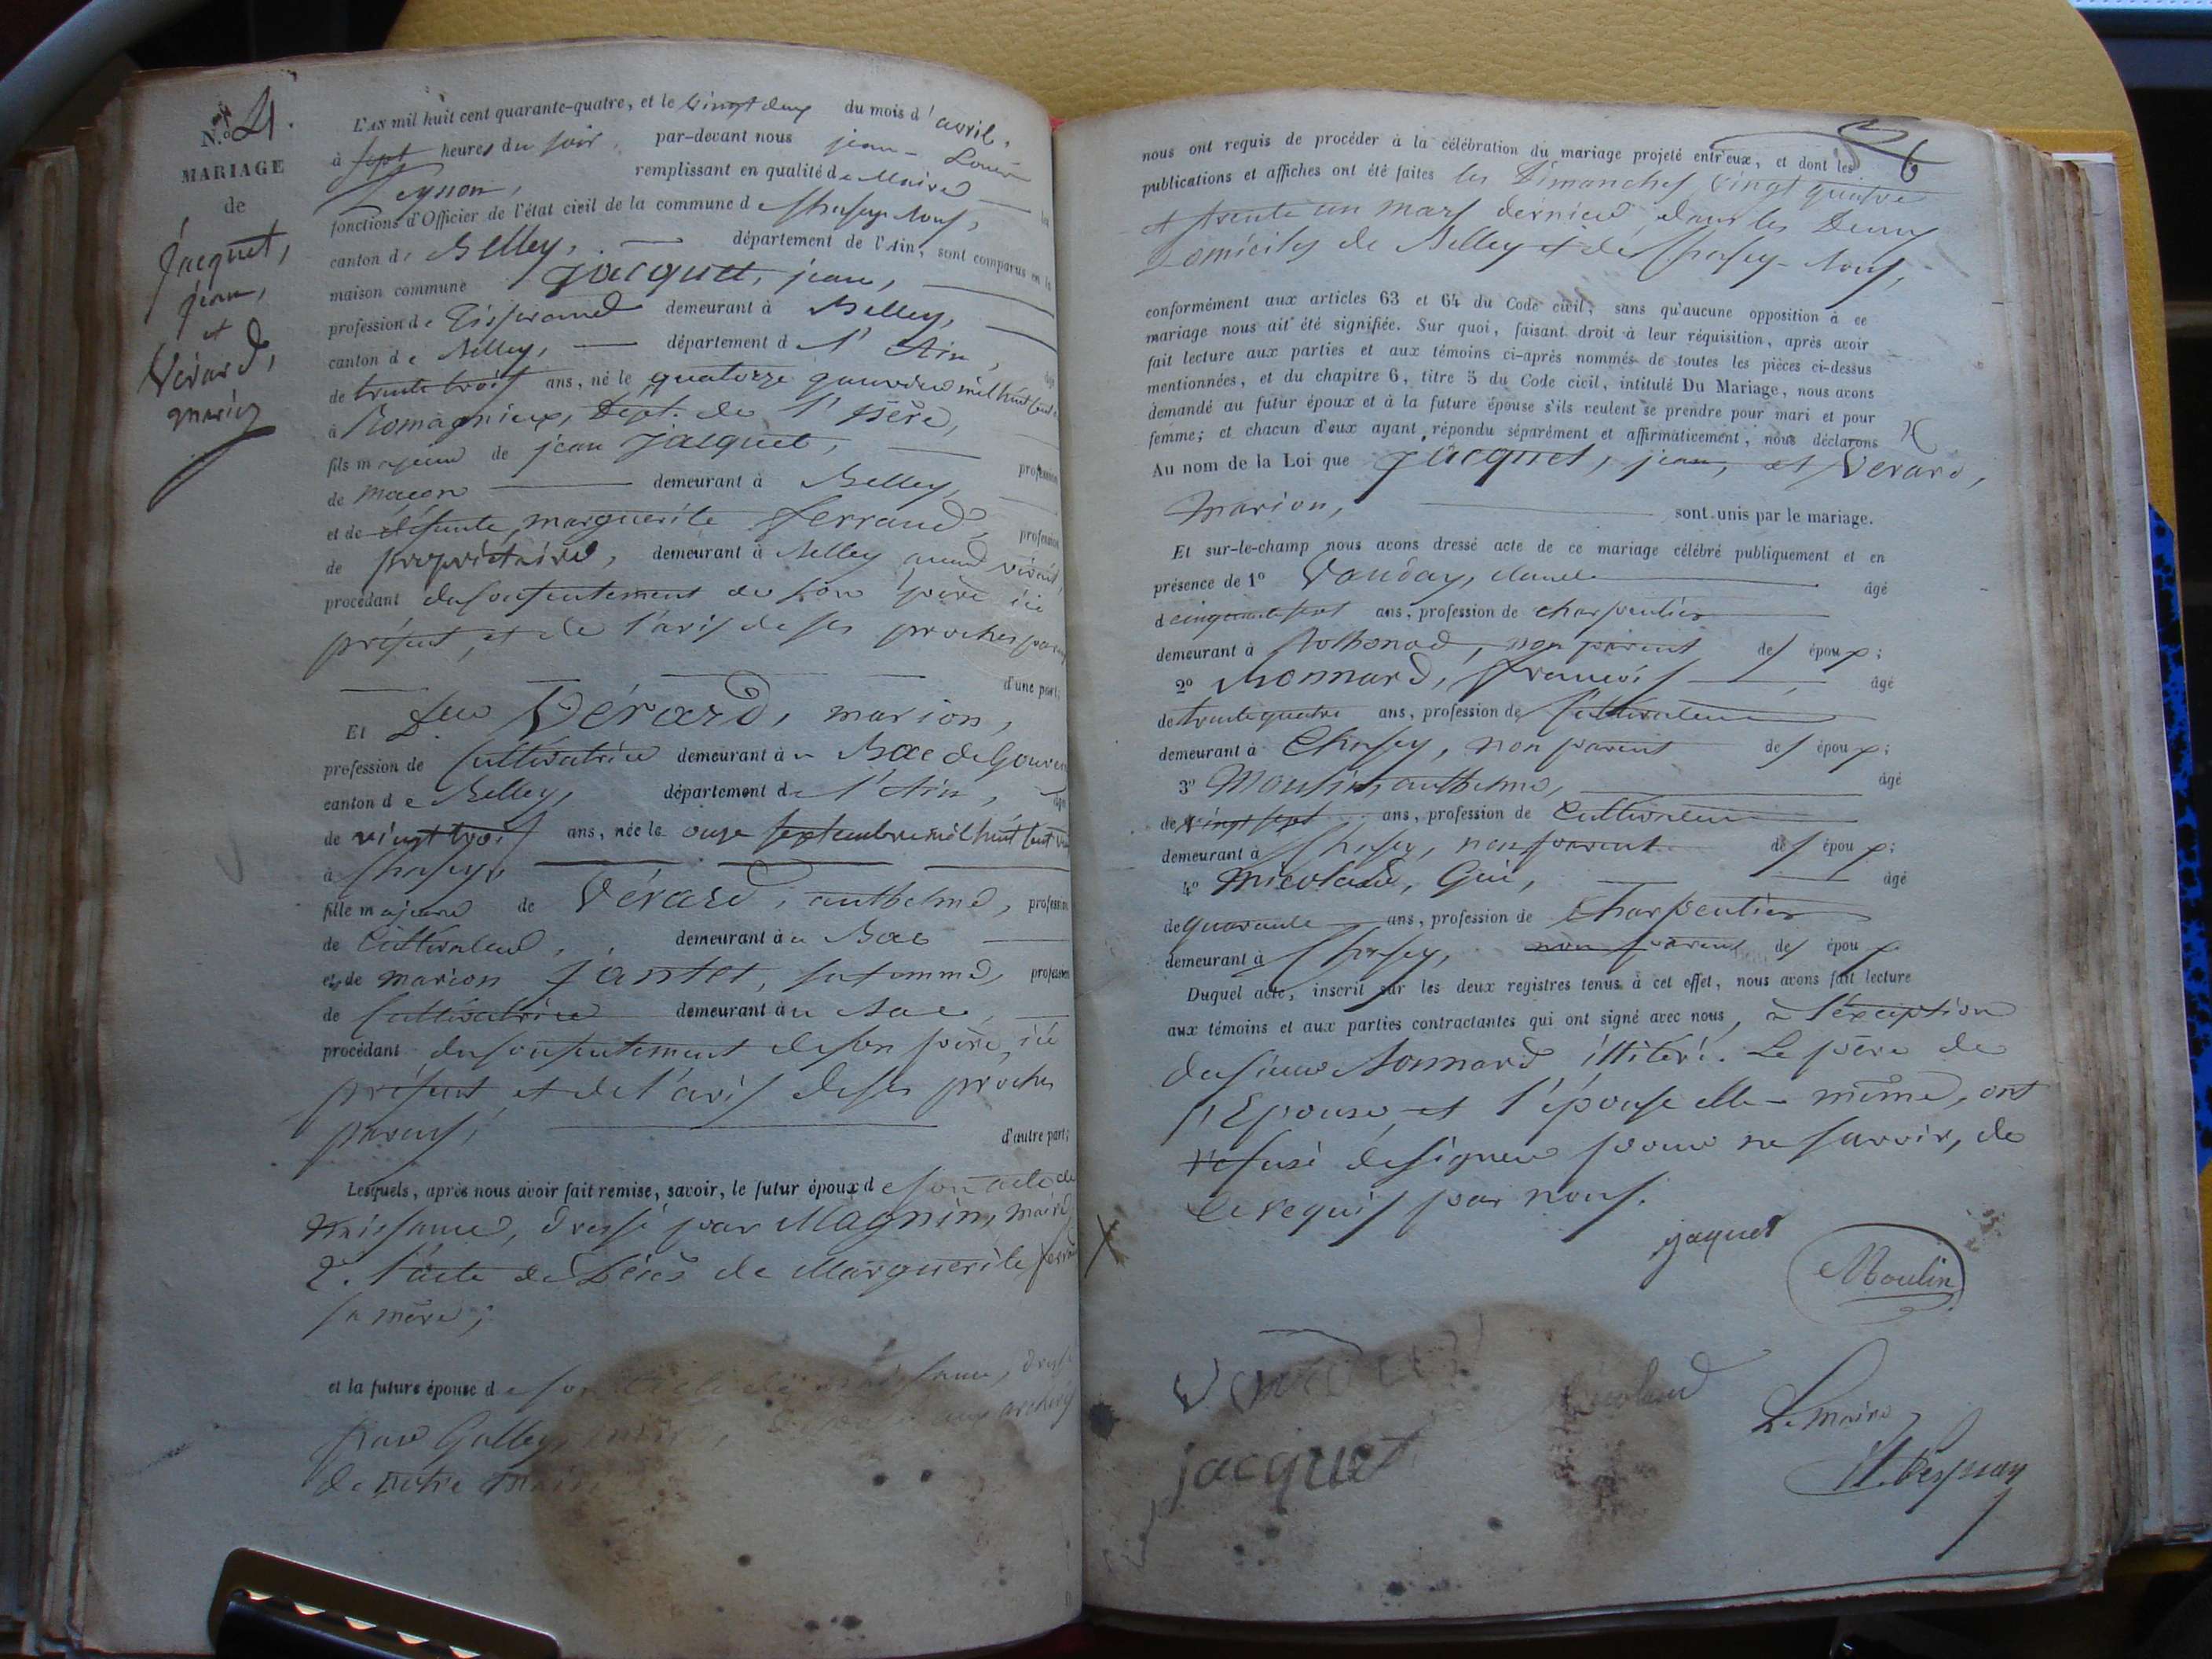 N.º 4.
MARIAGE
de
Jacquet,
jean,
et
Vérard,
marion
L'AN mil huit cent quarante-quatre, et le vingt deux du mois d'avril,
à sept heures du soir, par-devant nous jean-Louis
remplissant en qualité de Maire les
fonctions d'Officier de l'état civil de la commune de
canton de Belley, département de l'Ain, sont comparus en la
maison commune Jacquet, jean,
profession de Tisserand demeurant à Belley,
canton de Belley, département de l'Ain,
de trente trois ans, né le quatorze janvier mil huit cent
à Romagnieux, Dépt. de l'isère,
fils majeur de jean Jacquet, profession
de maçon demeurant à Belley,
et de défunte, marguerite ferrand, profession
de propriétaire, demeurant à Belley quand vivait
procédant du consentement de son père ici
présent, et de l'avis de ses proches
d'une part;
Et Dlle Vérard, marion,
profession de Cultivatrice demeurant à
canton de Belley, département de l'Ain,
de vingt trois ans, née le onze septembre mil huit cent
à Chasey,
fille majeure de Vérard, anthelme, profession
de Cultivateur, demeurant au Bac
et de marion jantet, sa femme, profession
de Cultivatrice demeurant au Bac,
procédant du consentement de son père, ici
présent et de l'avis de ses proches
parens, d'autre part;
Lesquels, après nous avoir fait remise, savoir, le futur époux de son acte de
naissance, dressé par Magnin, maire,
2º. l'acte de Décès de Marguerite ferrand
sa mère;
et la future épouse de son acte de naissance, dressé
par Galley
de notre mairie
6
nous ont requis de procéder à la célébration du mariage projeté entr'eux, et dont les
publications et affiches ont été faites les Dimanches vingt quatre
et trente un mars dernier, dans les deux
Domiciles de Belley et de Chasey-Bons,
conformément aux articles 63 et 64 du Code civil, sans qu'aucune opposition à ce
mariage nous ait été signifiée. Sur quoi, faisant droit à leur réquisition, après avoir
fait lecture aux parties et aux témoins ci-après nommés de toutes les pièces ci-dessus
mentionnées, et du chapitre 6, titre 5 du Code civil, intitulé Du Mariage, nous avons
demandé au futur époux et à la future épouse s'ils veulent se prendre pour mari et pour
femme; et chacun d'eux ayant répondu séparément et affirmativement, nous déclarons
Au nom de la Loi que Jacquet, jean, et Verard,
marion, sont unis par le mariage.
Et sur-le-champ nous avons dressé acte de ce mariage célébré publiquement et en
présence de 1º Vauday, claude âgé
de cinquante sept ans, profession de charpentier
demeurant à Rothonod, non parent des époux;
2º Bonnard, françois âgé
de trente quatre ans, profession de Cultivateur
demeurant à Chasey, non parent des époux;
3º Moulin, anthelme, âgé
de vingt sept ans, profession de Cultivateur
demeurant à Chasey, non parent des époux;
4º Micoland, Gui, âgé
de quarante ans, profession de Charpentier
demeurant à Chasey, non parent des époux
Duquel acte, inscrit sur les deux registres tenus à cet effet, nous avons fait lecture
aux témoins et aux parties contractantes qui ont signé avec nous, à l'exception
du sieur Bonnard illitéré. Le père de
l'Epouse, et l'épouse elle-même, ont
refusé de signer pour ne savoir, de
ce requis par nous.
jaquet
Moulin
Le maire,
jacquet